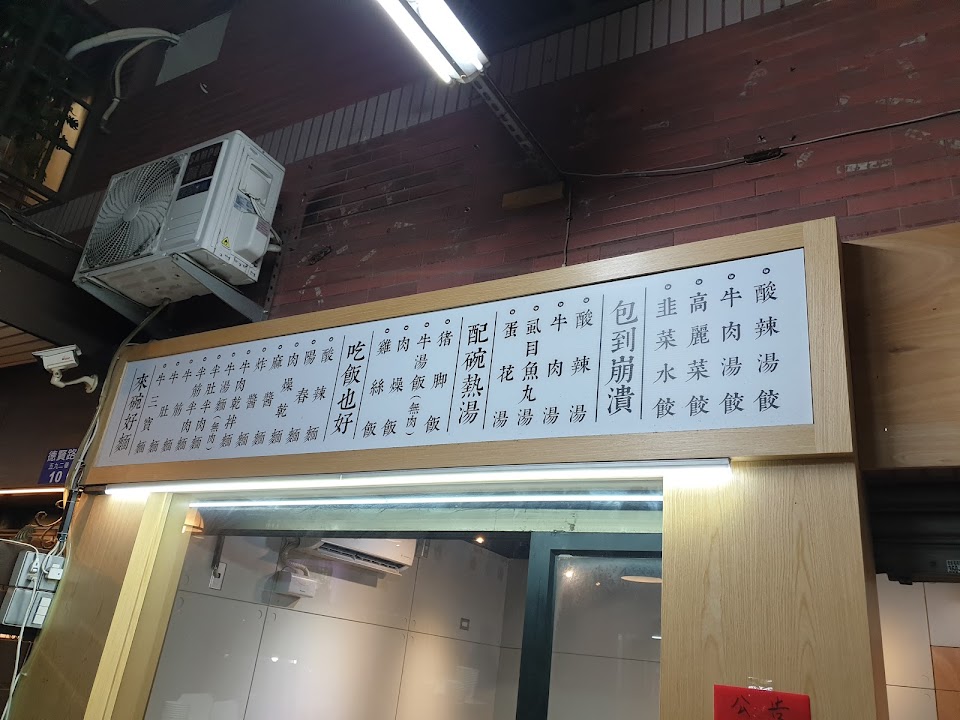 來碗好麵
牛三寶麵
牛筋麵
牛肚麵
半筋半肉麵
半肚半肉麵
牛湯麵(無肉)
牛肉乾拌麵
炸醬麵
麻醬麵
肉燥乾麵
陽春麵
酸辣麵
吃飯也好
雞絲飯
肉燥飯
牛湯飯(無肉)
豬腳飯
配碗熱湯
蛋花湯
虱目魚丸湯
牛肉湯
酸辣湯
包到崩潰
韭菜水餃
高麗菜餃
牛肉湯餃
酸辣湯餃
德賢路
五九二巷
10
公告